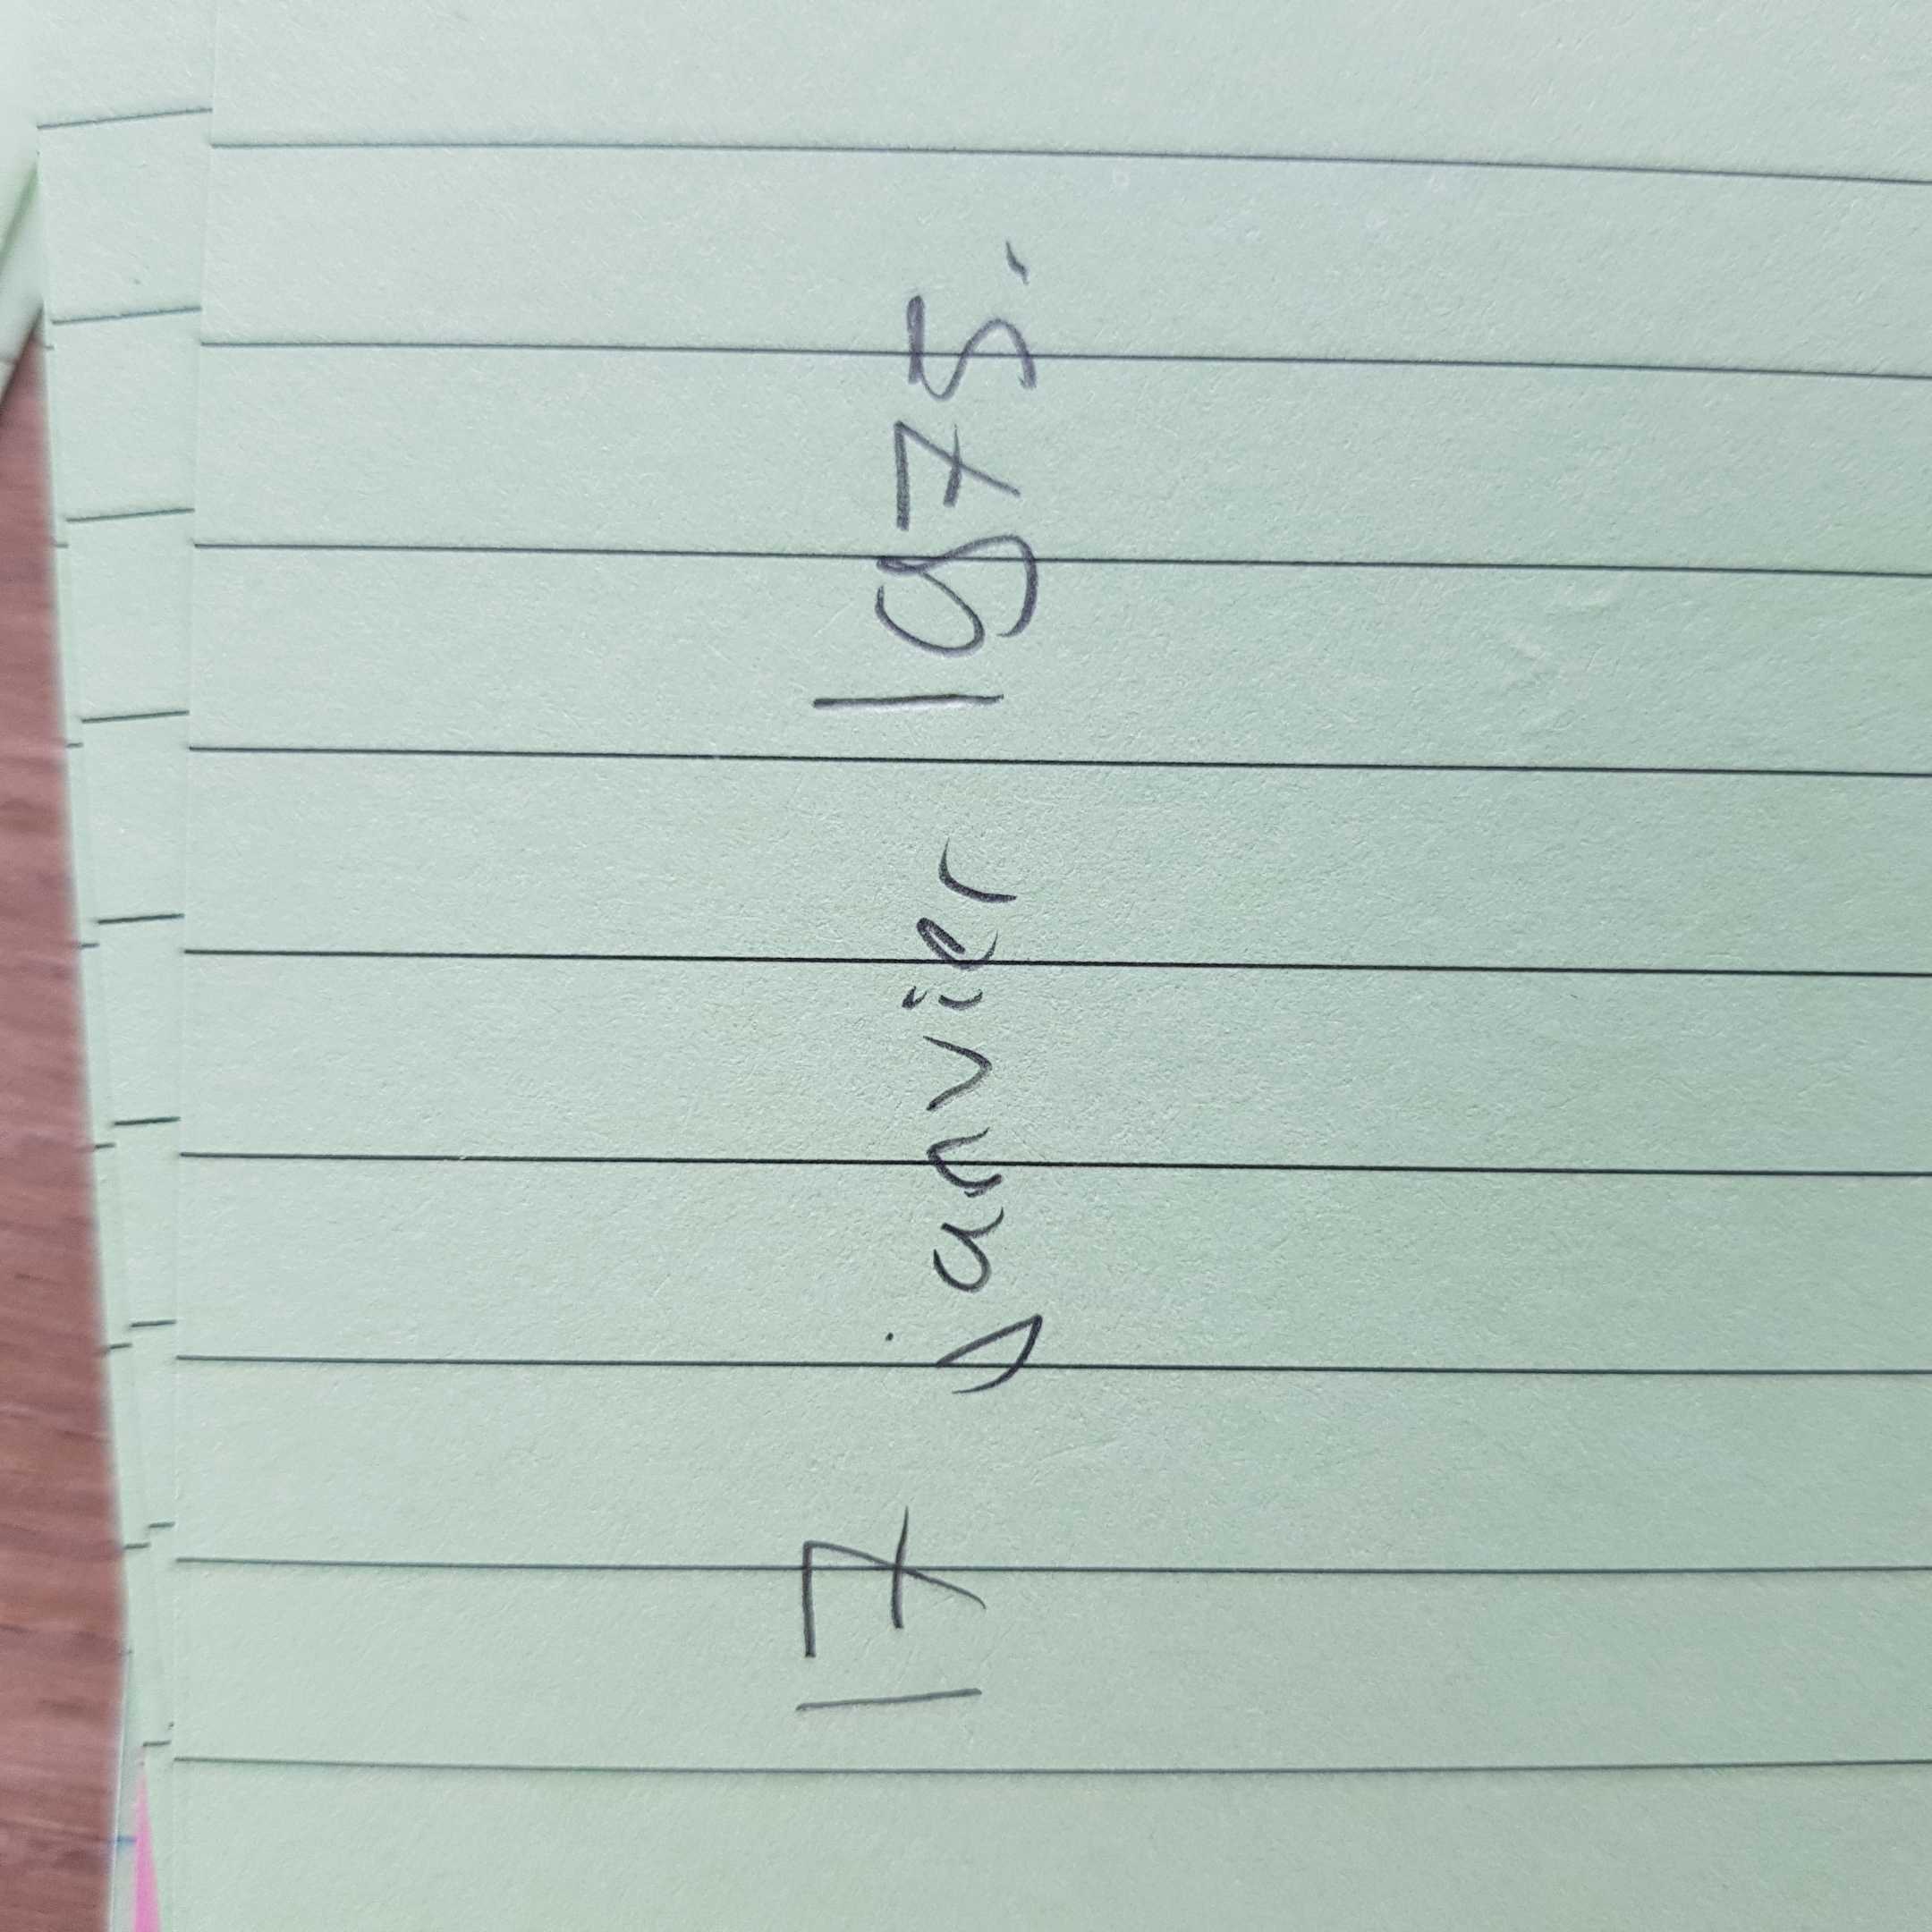 17 janvier 1975.